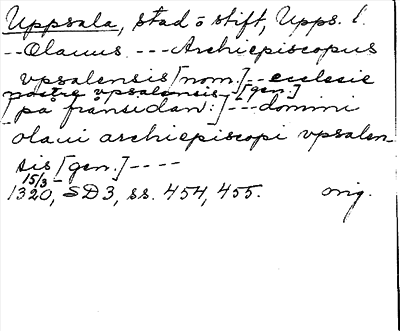 Uppsala, stad o stift, Upps. l.
-- Olauus. --- Archiepiscopus
vpsalensis [nom.] -- ecclesie
nostre vpsalensis [gen.]
[på frånsidan:] --- domini
olaui archiepiscopi vpsalen-
sis [gen.] ----
15/3
1320, SD3, ss. 454, 455. orig.